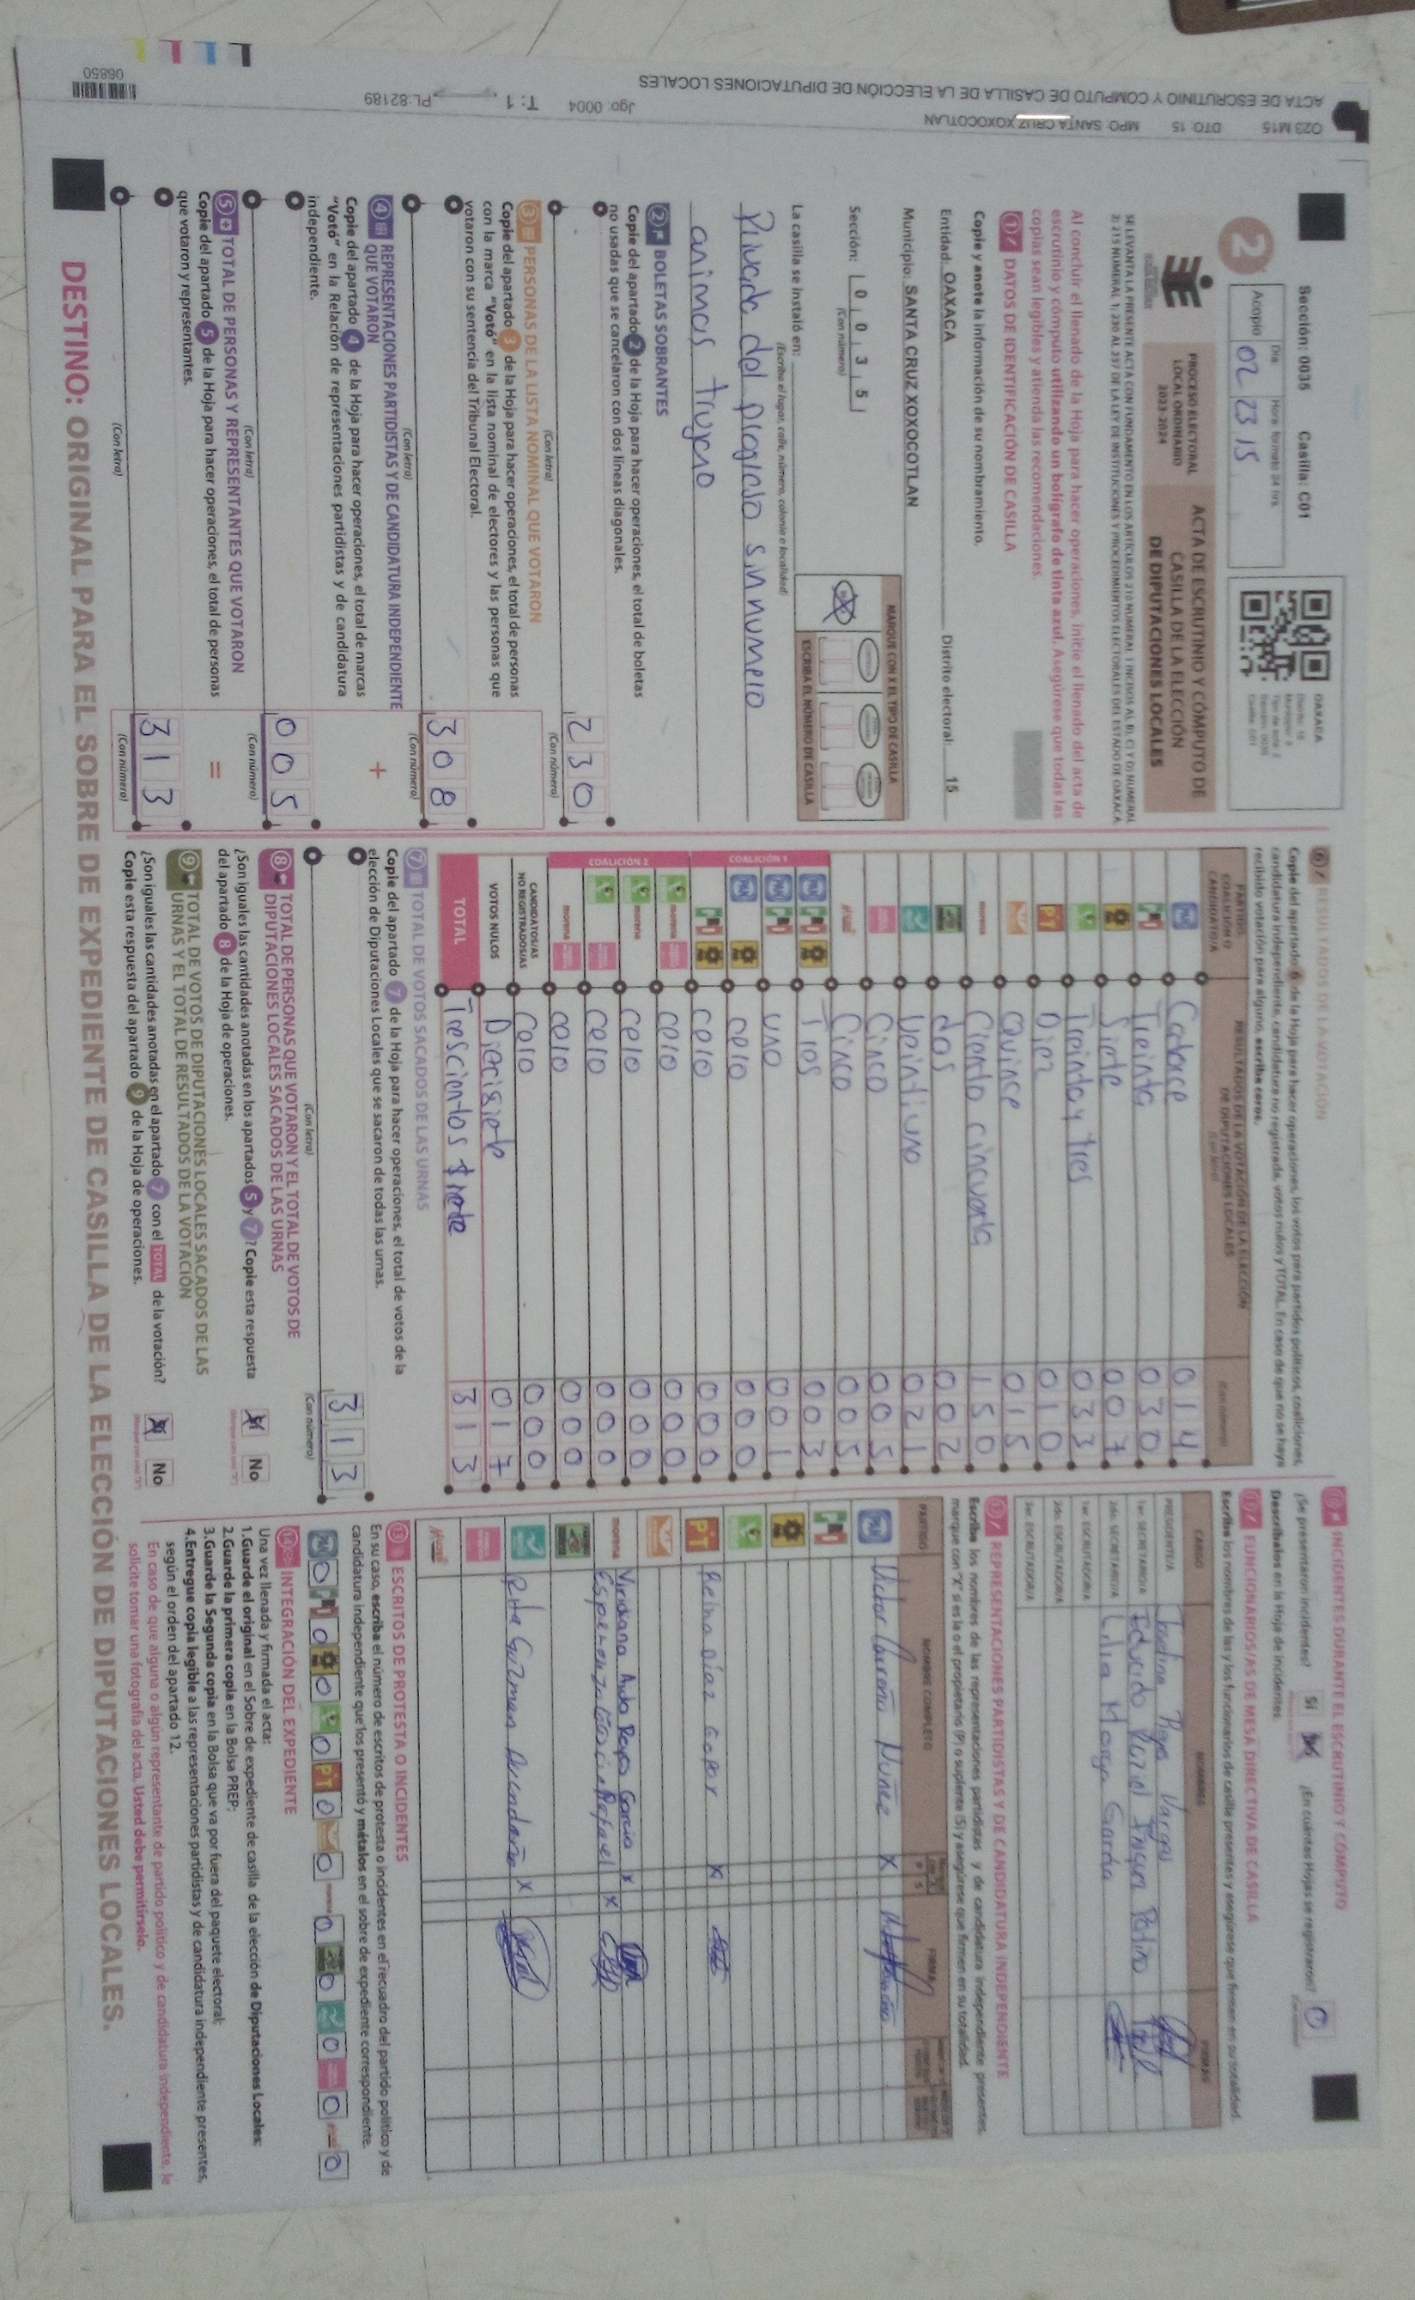 O23 M15 DTO: 15 MPO: SANTA CRUZ XOXOCOTLAN
ACTA DE ESCRUTINIO Y COMPUTO DE CASILLA DE LA ELECCIÓN DE DIPUTACIONES LOCALES
Jgo: 0004 T: 1 PL:82189
06850
Sección: 0035 Casilla: C01
2
Acopio
Día
Hora: formato 24 hrs.
02 23 15
OAXACA
PROCESO ELECTORAL
LOCAL ORDINARIO
2023-2024
ACTA DE ESCRUTINIO Y CÓMPUTO DE
CASILLA DE LA ELECCIÓN
DE DIPUTACIONES LOCALES
Al concluir el llenado de la Hoja para hacer operaciones, inicie el llenado del acta de
escrutinio y cómputo utilizando un bolígrafo de tinta azul. Asegúrese que todas las
copias sean legibles y atienda las recomendaciones.
1 DATOS DE IDENTIFICACIÓN DE CASILLA
Copie y anote la información de su nombramiento.
Entidad: OAXACA Distrito electoral: 15
Municipio: SANTA CRUZ XOXOCOTLAN
Sección: 0 0 3 5
(Con número)
MARQUE CON X EL TIPO DE CASILLA
ESCRIBA EL NÚMERO DE CASILLA
La casilla se instaló en:
(Escriba el lugar, calle, número, colonia o localidad)
Privada del progreso sin numero
animas trujano
2 BOLETAS SOBRANTES
Copie del apartado 2 de la Hoja para hacer operaciones, el total de boletas
no usadas que se cancelaron con dos líneas diagonales.
230
(Con letra) (Con número)
3 PERSONAS DE LA LISTA NOMINAL QUE VOTARON
Copie del apartado 3 de la Hoja para hacer operaciones, el total de personas
con la marca "Votó" en la lista nominal de electores y las personas que
votaron con su sentencia del Tribunal Electoral.
308
(Con letra) (Con número)
4 REPRESENTACIONES PARTIDISTAS Y DE CANDIDATURA INDEPENDIENTE
QUE VOTARON
Copie del apartado 4 de la Hoja para hacer operaciones, el total de marcas
"Votó" en la Relación de representaciones partidistas y de candidatura
independiente.
+
005
(Con letra) (Con número)
5 TOTAL DE PERSONAS Y REPRESENTANTES QUE VOTARON
Copie del apartado 5 de la Hoja para hacer operaciones, el total de personas
que votaron y representantes.
=
313
(Con letra) (Con número)
6 RESULTADOS DE LA VOTACIÓN
Copie del apartado 6 de la Hoja para hacer operaciones, los votos para partidos políticos, coaliciones,
candidatura independiente, candidatura no registrada, votos nulos y TOTAL. En caso de que no se haya
recibido votación para alguno, escriba ceros.
PARTIDO,
COALICIÓN O
CANDIDATO/A
RESULTADOS DE LA VOTACIÓN DE LA ELECCIÓN
DE DIPUTACIONES LOCALES
(Con letra)
(Con número)
PAN Catorce 014
PRI Treinta 030
Siete 007
Treinta y tres 033
PT Diez 010
Quince 015
morena Ciento cincuenta 150
dos 002
Veintiuno 021
Cinco 005
Cinco 005
COALICIÓN 1
Tres 003
uno 001
cero 000
cero 000
COALICIÓN 2
cero 000
cero 000
cero 000
cero 000
CANDIDATOS/AS
NO REGISTRADOS/AS
cero 000
VOTOS NULOS Diecisiete 017
TOTAL 313
7 TOTAL DE VOTOS SACADOS DE LAS URNAS
Copie del apartado 7 de la Hoja para hacer operaciones, el total de votos de la
elección de Diputaciones Locales que se sacaron de todas las urnas.
313
(Con letra) (Con número)
8 TOTAL DE PERSONAS QUE VOTARON Y EL TOTAL DE VOTOS DE
DIPUTACIONES LOCALES SACADOS DE LAS URNAS
¿Son iguales las cantidades anotadas en los apartados 5 y 7? Copie esta respuesta
del apartado 8 de la Hoja de operaciones.
Sí No
9 TOTAL DE VOTOS DE DIPUTACIONES LOCALES SACADOS DE LAS
URNAS Y EL TOTAL DE RESULTADOS DE LA VOTACIÓN
¿Son iguales las cantidades anotadas en el apartado 7 con el TOTAL de la votación?
Copie esta respuesta del apartado 9 de la Hoja de operaciones.
Sí No
10 INCIDENTES DURANTE EL ESCRUTINIO Y CÓMPUTO
¿Se presentaron incidentes? Sí No ¿En cuántas Hojas se registraron?
Descríbalos en la Hoja de incidentes.
11 FUNCIONARIOS/AS DE MESA DIRECTIVA DE CASILLA
Escriba los nombres de las y los funcionarios de casilla presentes y asegúrese que firmen en su totalidad.
CARGO NOMBRES FIRMAS
PRESIDENTE/A
1er. SECRETARIO/A
2do. SECRETARIO/A
1er. ESCRUTADOR/A
2do. ESCRUTADOR/A
3er. ESCRUTADOR/A
12 REPRESENTACIONES PARTIDISTAS Y DE CANDIDATURA INDEPENDIENTE
Escriba los nombres de las representaciones partidistas y de candidatura independiente presentes,
marque con "X" si es la o el propietario (P) o suplente (S) y asegúrese que firmen en su totalidad.
PARTIDO NOMBRE COMPLETO FIRMA
Victor Carreño Nuñez X
PT Reina Diaz Gopar X
morena Viridiana Aido Reyes Garcia X
Rita Guzman Avendaño X
13 ESCRITOS DE PROTESTA O INCIDENTES
En su caso, escriba el número de escritos de protesta o incidentes en el recuadro del partido político y de
candidatura independiente que los presentó y métalos en el sobre de expediente correspondiente.
14 INTEGRACIÓN DEL EXPEDIENTE
Una vez llenada y firmada el acta:
1.Guarde el original en el Sobre de expediente de casilla de la elección de Diputaciones Locales;
2.Guarde la primera copia en la Bolsa PREP;
3.Guarde la Segunda copia en la Bolsa que va por fuera del paquete electoral;
4.Entregue copia legible a las representaciones partidistas y de candidatura independiente presentes,
según el orden del apartado 12.
En caso de que alguna o algún representante de partido político y de candidatura independiente, le
solicite tomar una fotografía del acta. Usted debe permitírselo.
DESTINO: ORIGINAL PARA EL SOBRE DE EXPEDIENTE DE CASILLA DE LA ELECCIÓN DE DIPUTACIONES LOCALES.